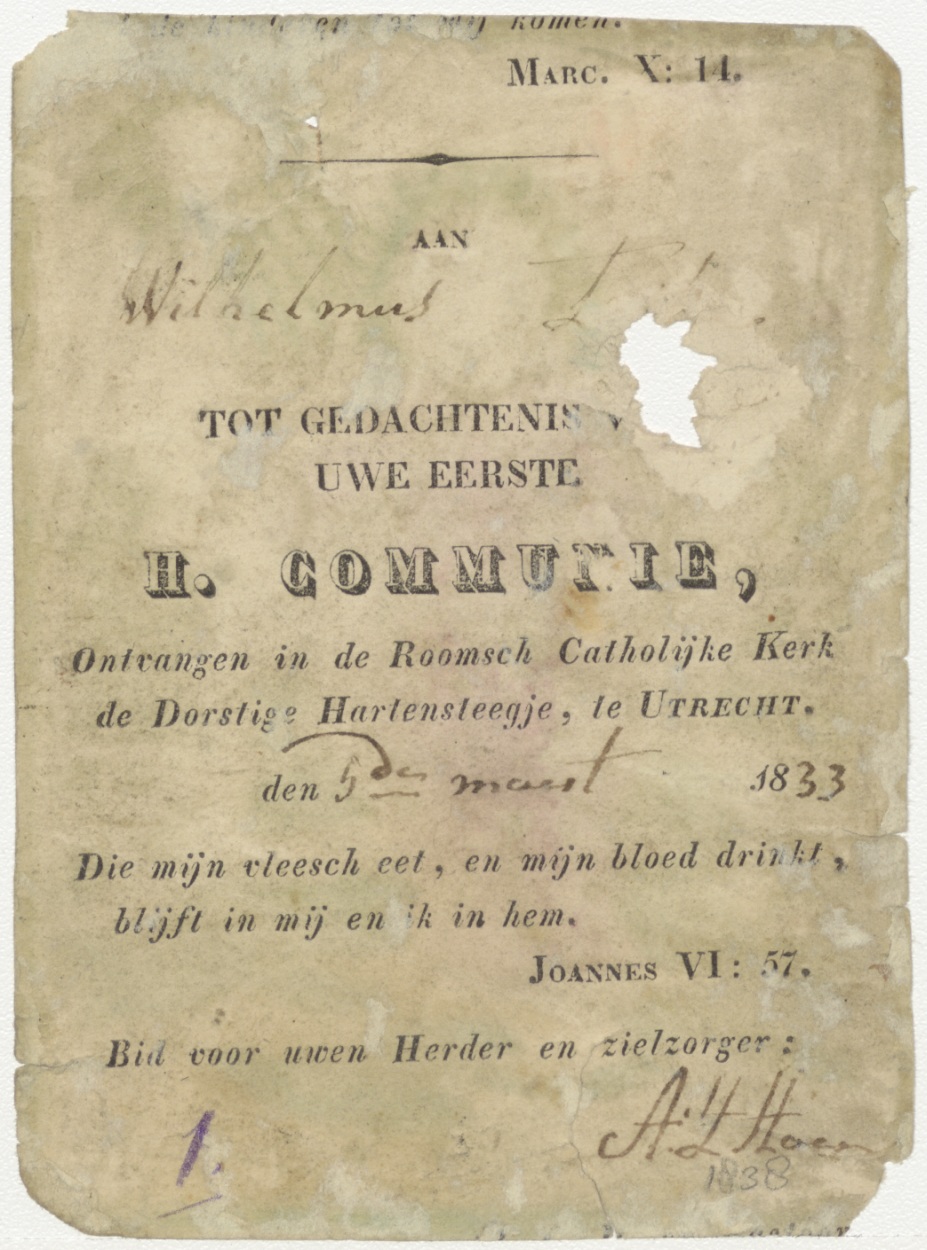 mij komen.
MARC. X: 14.
AAN
Wilhelmus
TOT GEDACHTENIS
UWE EERSTE
H. COMMUNIE,
Ontvangen in de Roomsch Catholijke Kerk
de Dorstige Hartensteegje, te UTRECHT.
den 5den maart 1833
Die mijn vleesch eet, en mijn bloed drinkt,
blijft in mij en ik in hem.
JOANNES VI: 57.
Bid voor uwen Herder en zielzorger:
1.
1838